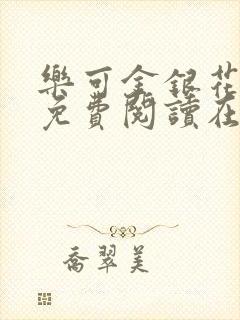 樂可金銀花
免費閱讀在
喬翠美